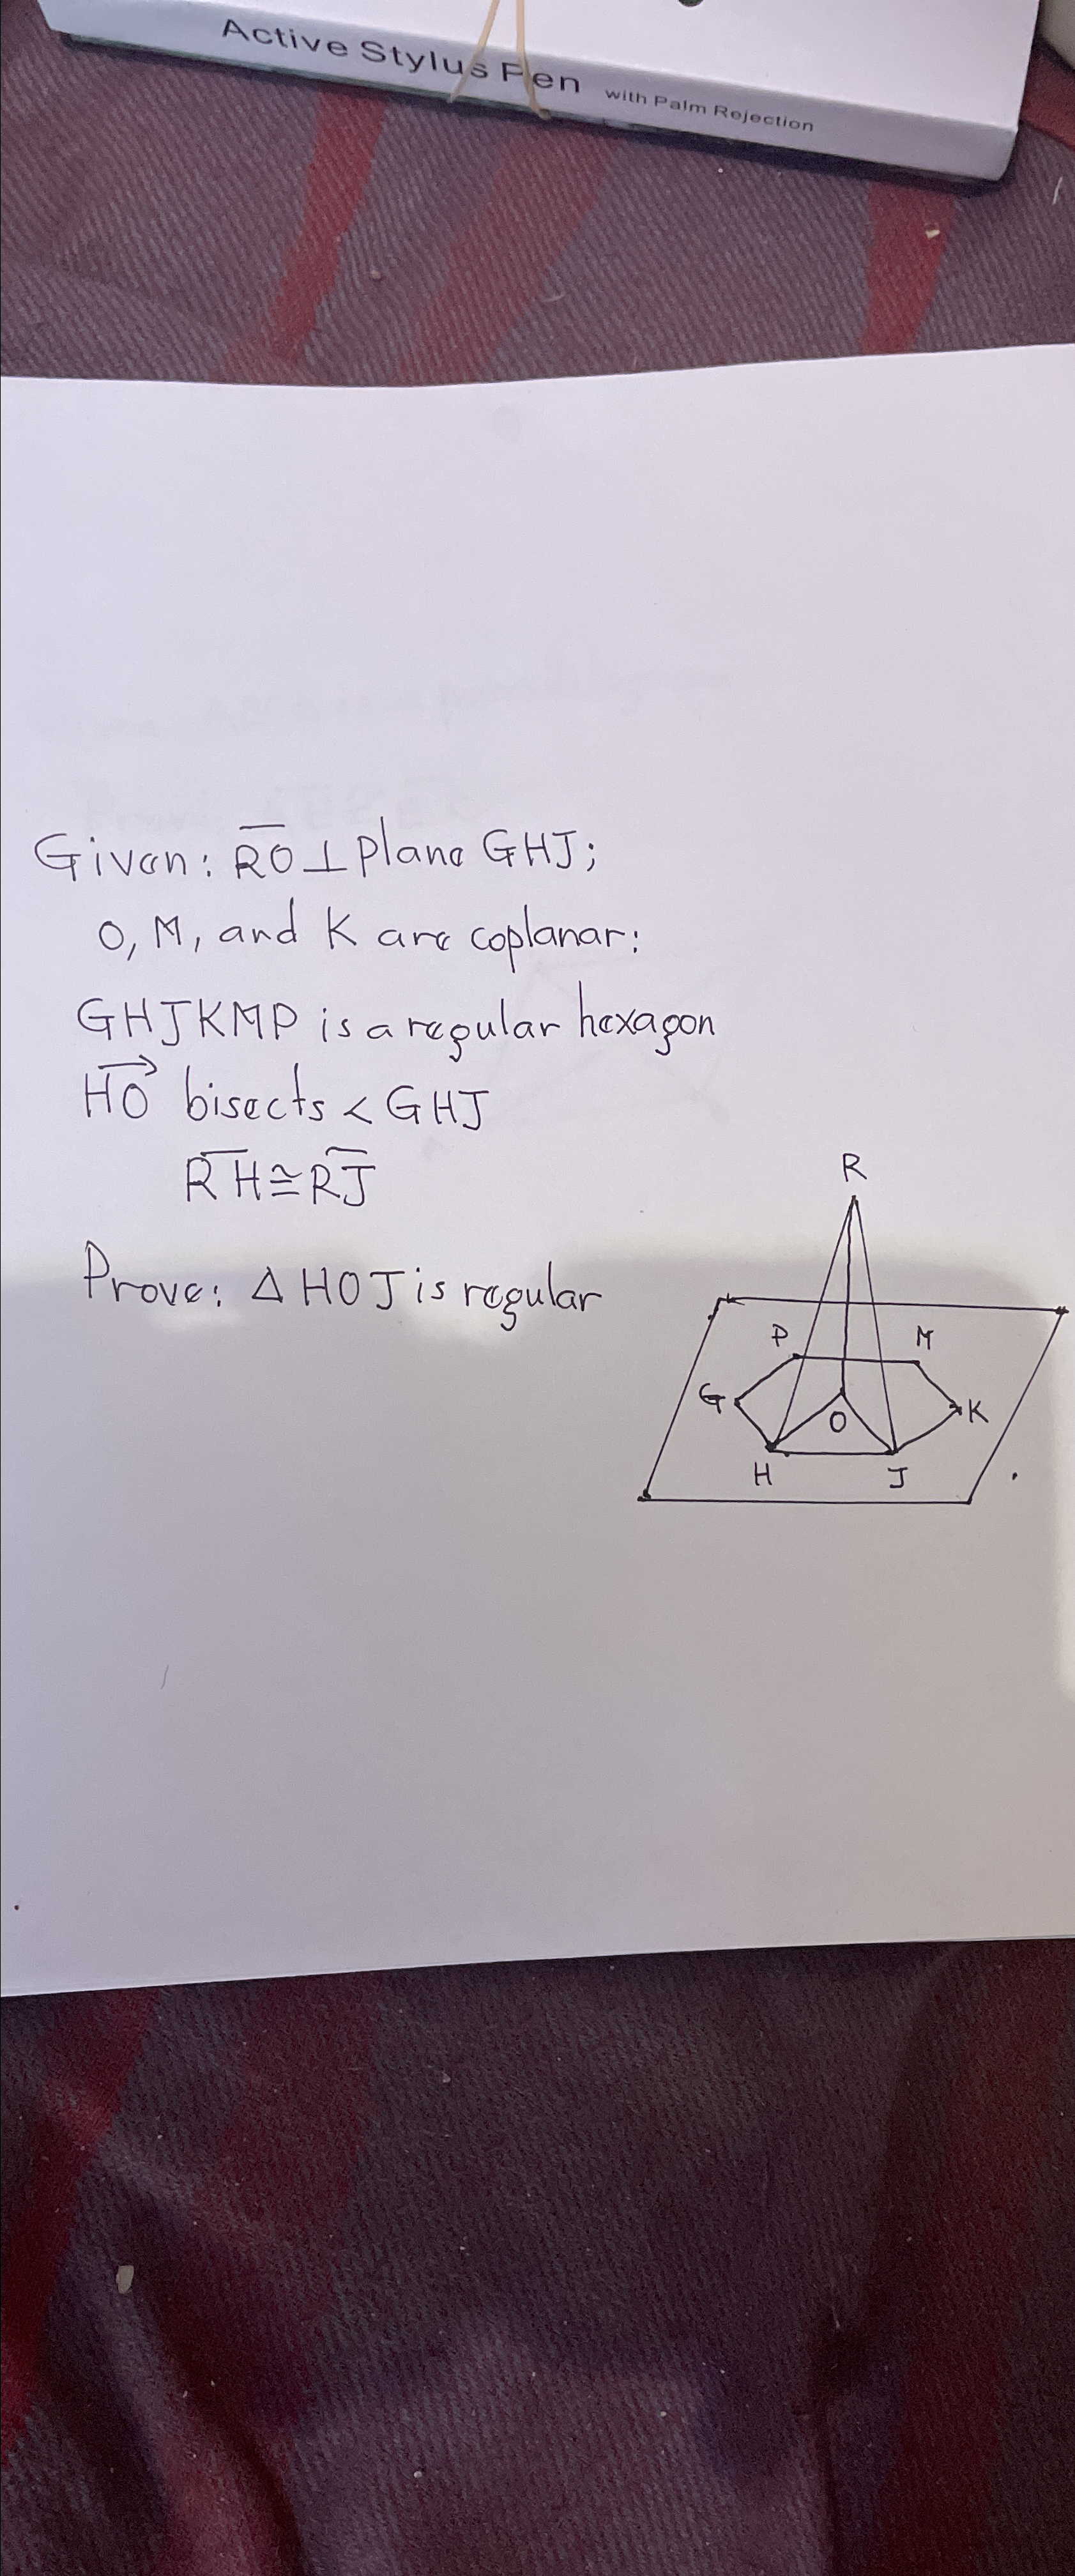 Active Stylus Pen with Palm Rejection
Given: RO ⊥ plane GHJ;
O, M, and K are coplanar:
GHJKMP is a regular hexagon
HO bisects < GHJ
RH ≅ RJ
Prove: △ HOJ is regular
R
P M
G O K
H J